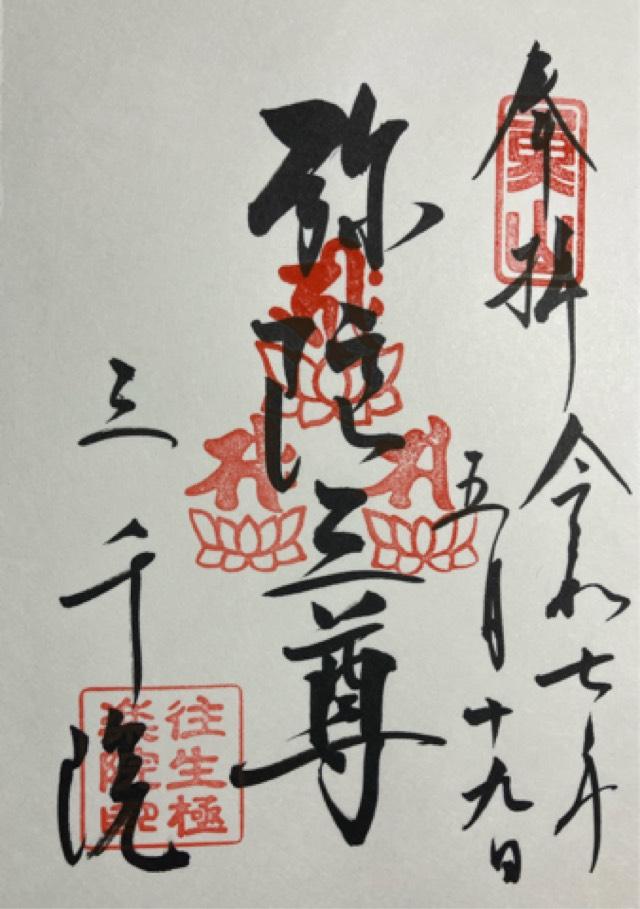 奉拝
令和七年
五月十九日
弥陀三尊
三千院
東山
往生極
楽院印